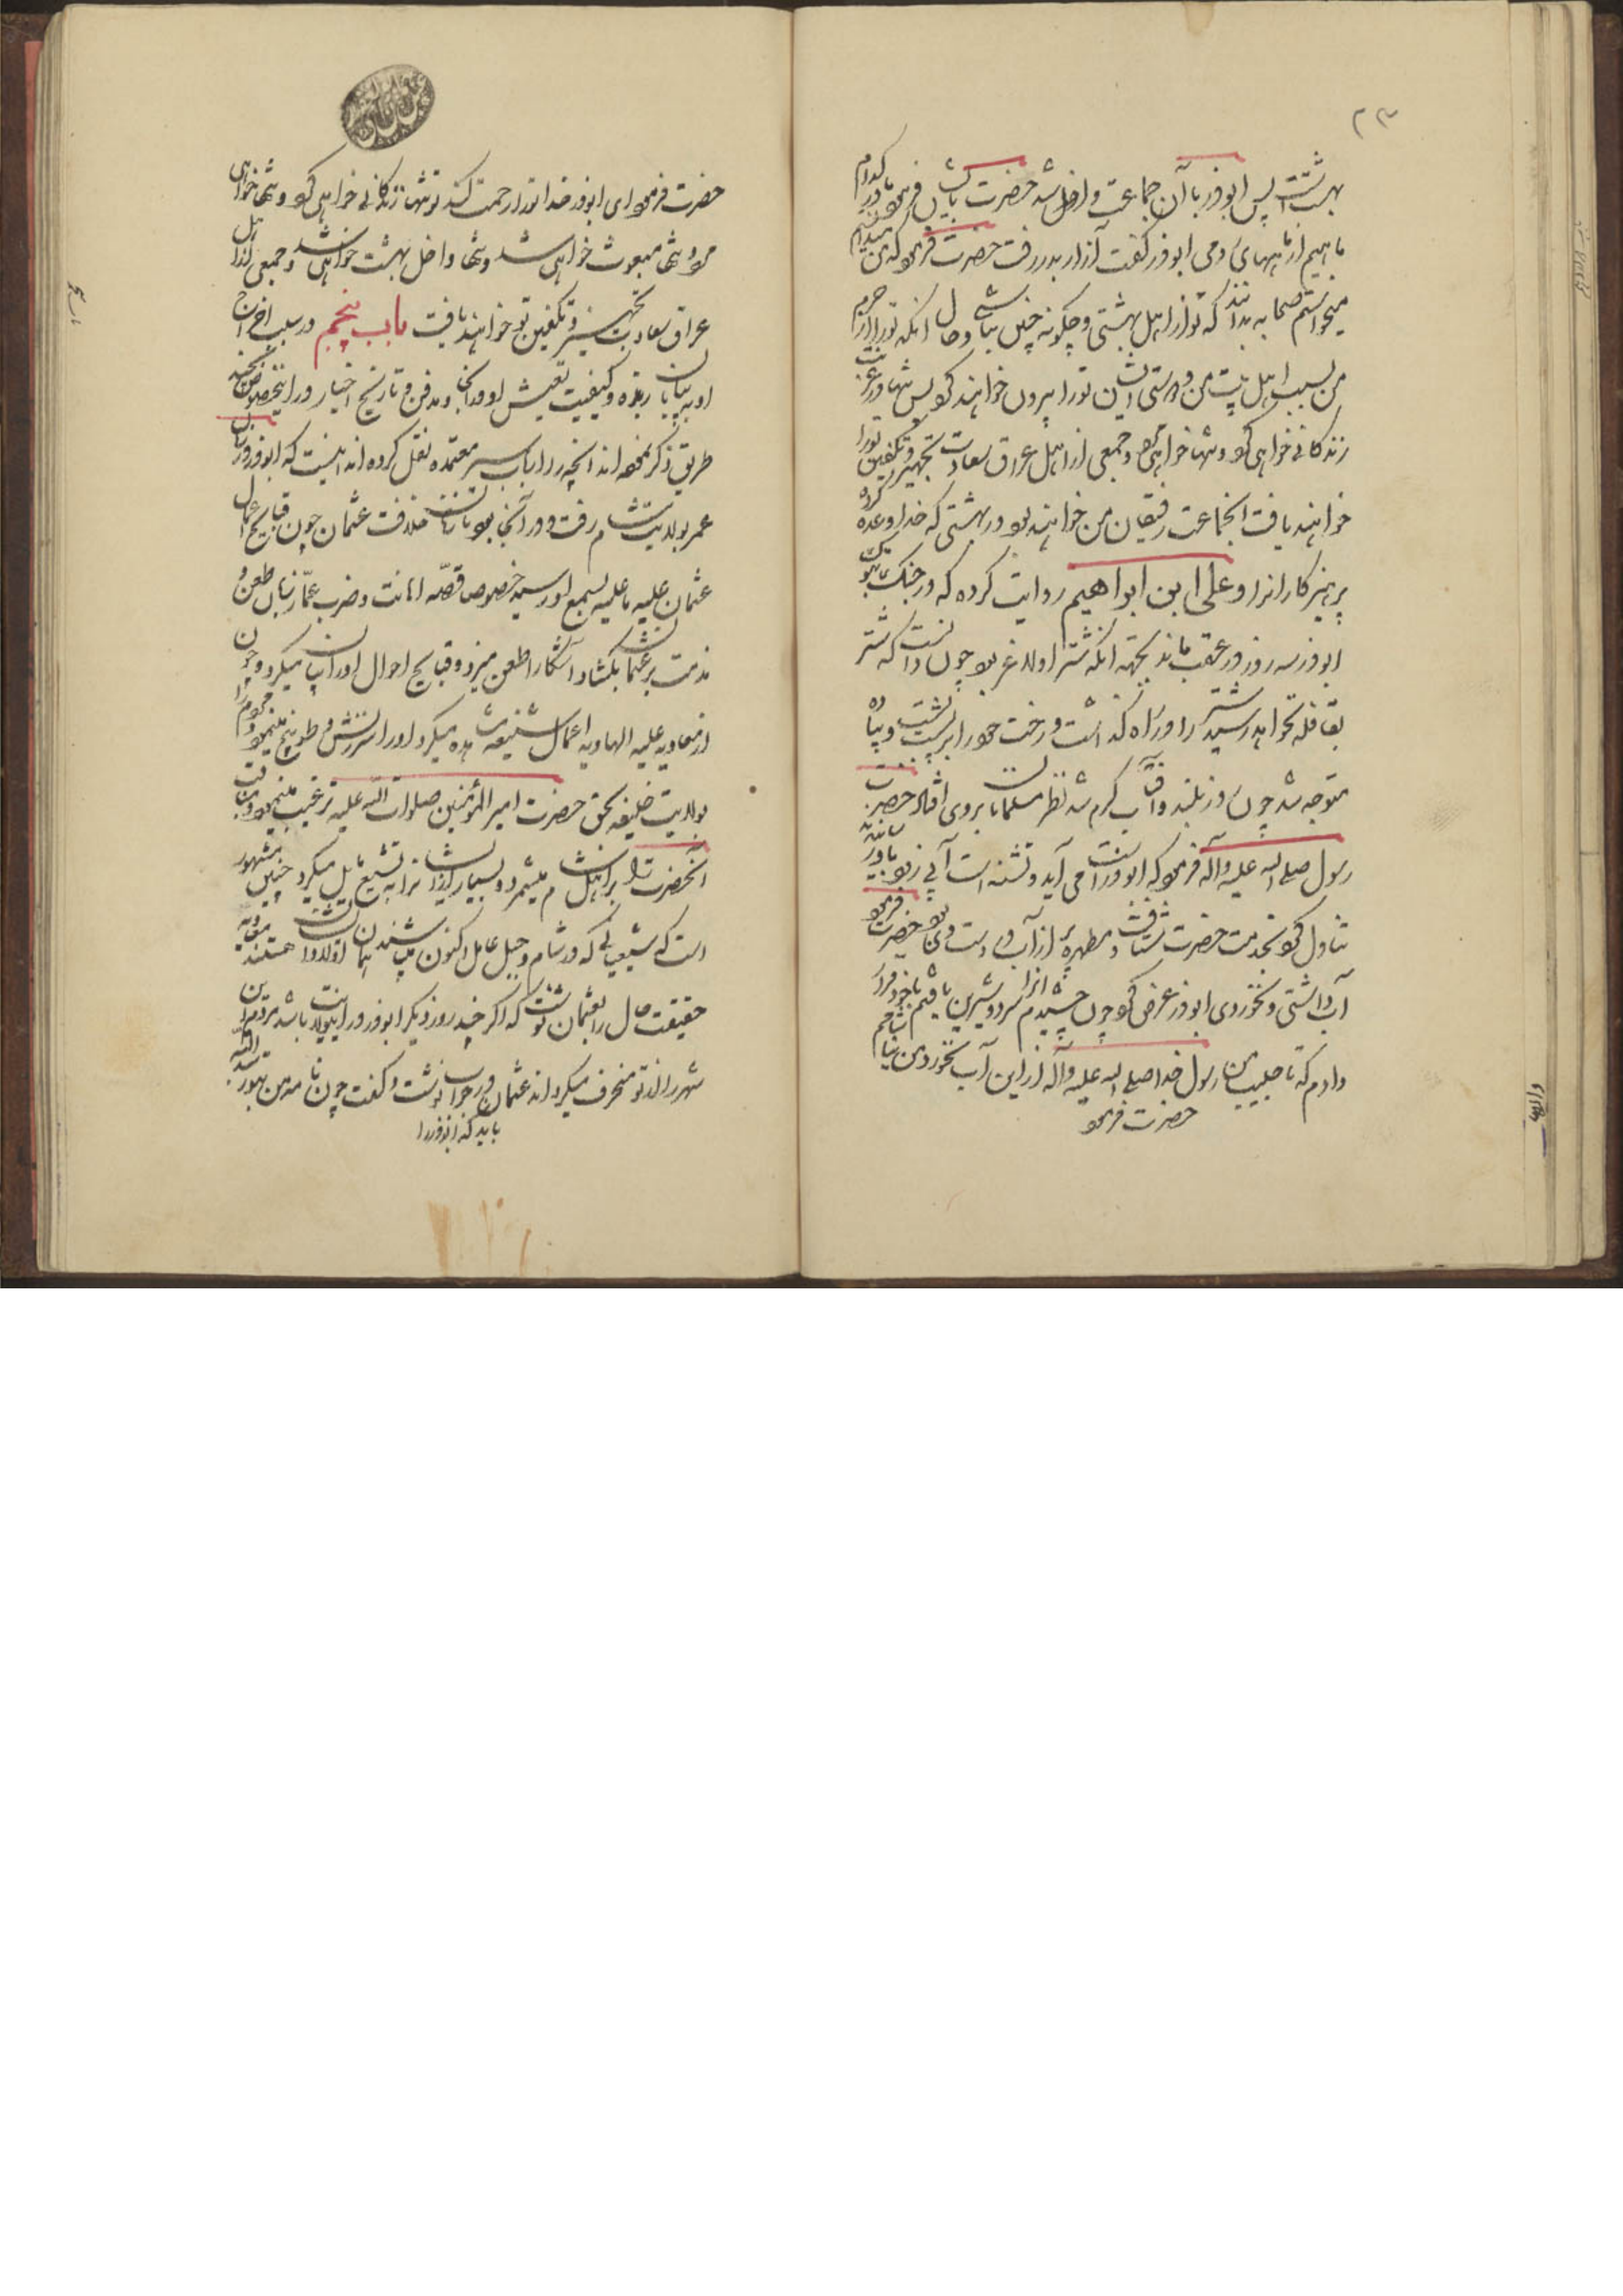 ۲۳
بهشت است پس ابوذر با آن جماعت داخل شد حضرت بایشان فرمود ما در کدام
ماهیم از ماههای رومی ابوذر گفت آزار بدر رفت حضرت فرمود که من میدانم
میخواستم صحابه بدانند که تو از اهل بهشتی و چگونه چنین نباشی و حال آنکه تو را از حرم
من بسبب اهل بیت من و دوستی ایشان تو را بیرون خواهند کرد پس تنها در غربت
زندگانی خواهی کرد و تنها خواهی مرد و جمعی از اهل عراق سعادت تجهیز و تکفین تو را
خواهند یافت آنجماعت رفیقان من خواهند بود در بهشتی که خدا وعده کرده
پرهیزکارانرا و علی ابن ابراهیم روایت کرده که در جنگ تبوک
ابوذر سه روز در عقب ماند بجهة آنکه شتر او لاغر بود چون دانست که شتر
بقافله نخواهد رسید شتر را در راه گذاشت و رخت خود را بر پشت بست و پیاده
متوجه شد چون روز بلند و آفتاب گرم شد نظر مسلمانان بر وی افتاد حضرت
رسول صلی الله علیه وآله فرمود که ابوذر است می آید و تشنه است آبی زود باو برسانید
تناول کرد بخدمت حضرت شتافت و مطهره پر از آب در دست وی بود حضرت فرمود
آب داشتی و نخوردی ابوذر عرض کرد چون چشیدم آنرا سرد و شیرین یافتم با خود قرار
دادم که تا حبیب من رسول خدا صلی الله علیه وآله از این آب نخورد من نیاشامم
حضرت فرمود
حضرت فرمود ای ابوذر خدا تو را رحمت کند تو تنها زندگانی خواهی کرد و تنها خواهی
مرد و تنها مبعوث خواهی شد و تنها داخل بهشت خواهی شد و جمعی از اهل
عراق سعادت تجهیز و تکفین تو خواهند یافت باب پنجم در سبب اخراج
او به بیابان ربذه و کیفیت تعیش او در آنجا و مدفن و تاریخ اخبار در اینخصوص بچند
طریق ذکر نموده اند آنچه ارباب سیر معتمده نقل کرده اند اینست که ابوذر در زمان
عمر بولایت شام رفت و در آنجا بود تا زمان خلافت عثمان چون قبایح اعمال
عثمان علیه ما علیه بسمع او رسید خصوص قصّه اهانت و ضرب عمّار زبان طعن و
مذمت بر عثمان بگشاد و آشکارا طعن میزد و قبایح احوال او را بیان میکرد و چون
از معاویه علیه الهاویه اعمال شنیعه مشاهده میکرد او را سرزنش و توبیخ مینمود و مردم را
بولایت خلیفه بحق حضرت امیر المؤمنین صلوات الله علیه ترغیب مینمود و مناقب
آنحضرت را بر اهل شام میشمرد و بسیار از ایشان را به تشیع مایل میکرد چنین مشهور
است که شیعیانی که در شام و جبل عامل اکنون میباشند
حقیقت حال را بعثمان نوشت که اگر چند روز دیگر ابوذر در این ولایت باشد مردم این
شهر را از تو منحرف میگرداند عثمان در جواب نوشت و گفت چون نامه من بتو رسد البته
باید که ابوذر را